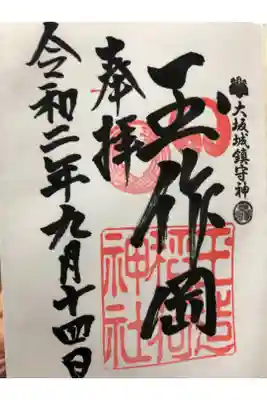 大坂城鎮守神
玉作岡
奉拝
令和二年九月十四日
玉造
稲荷
神社